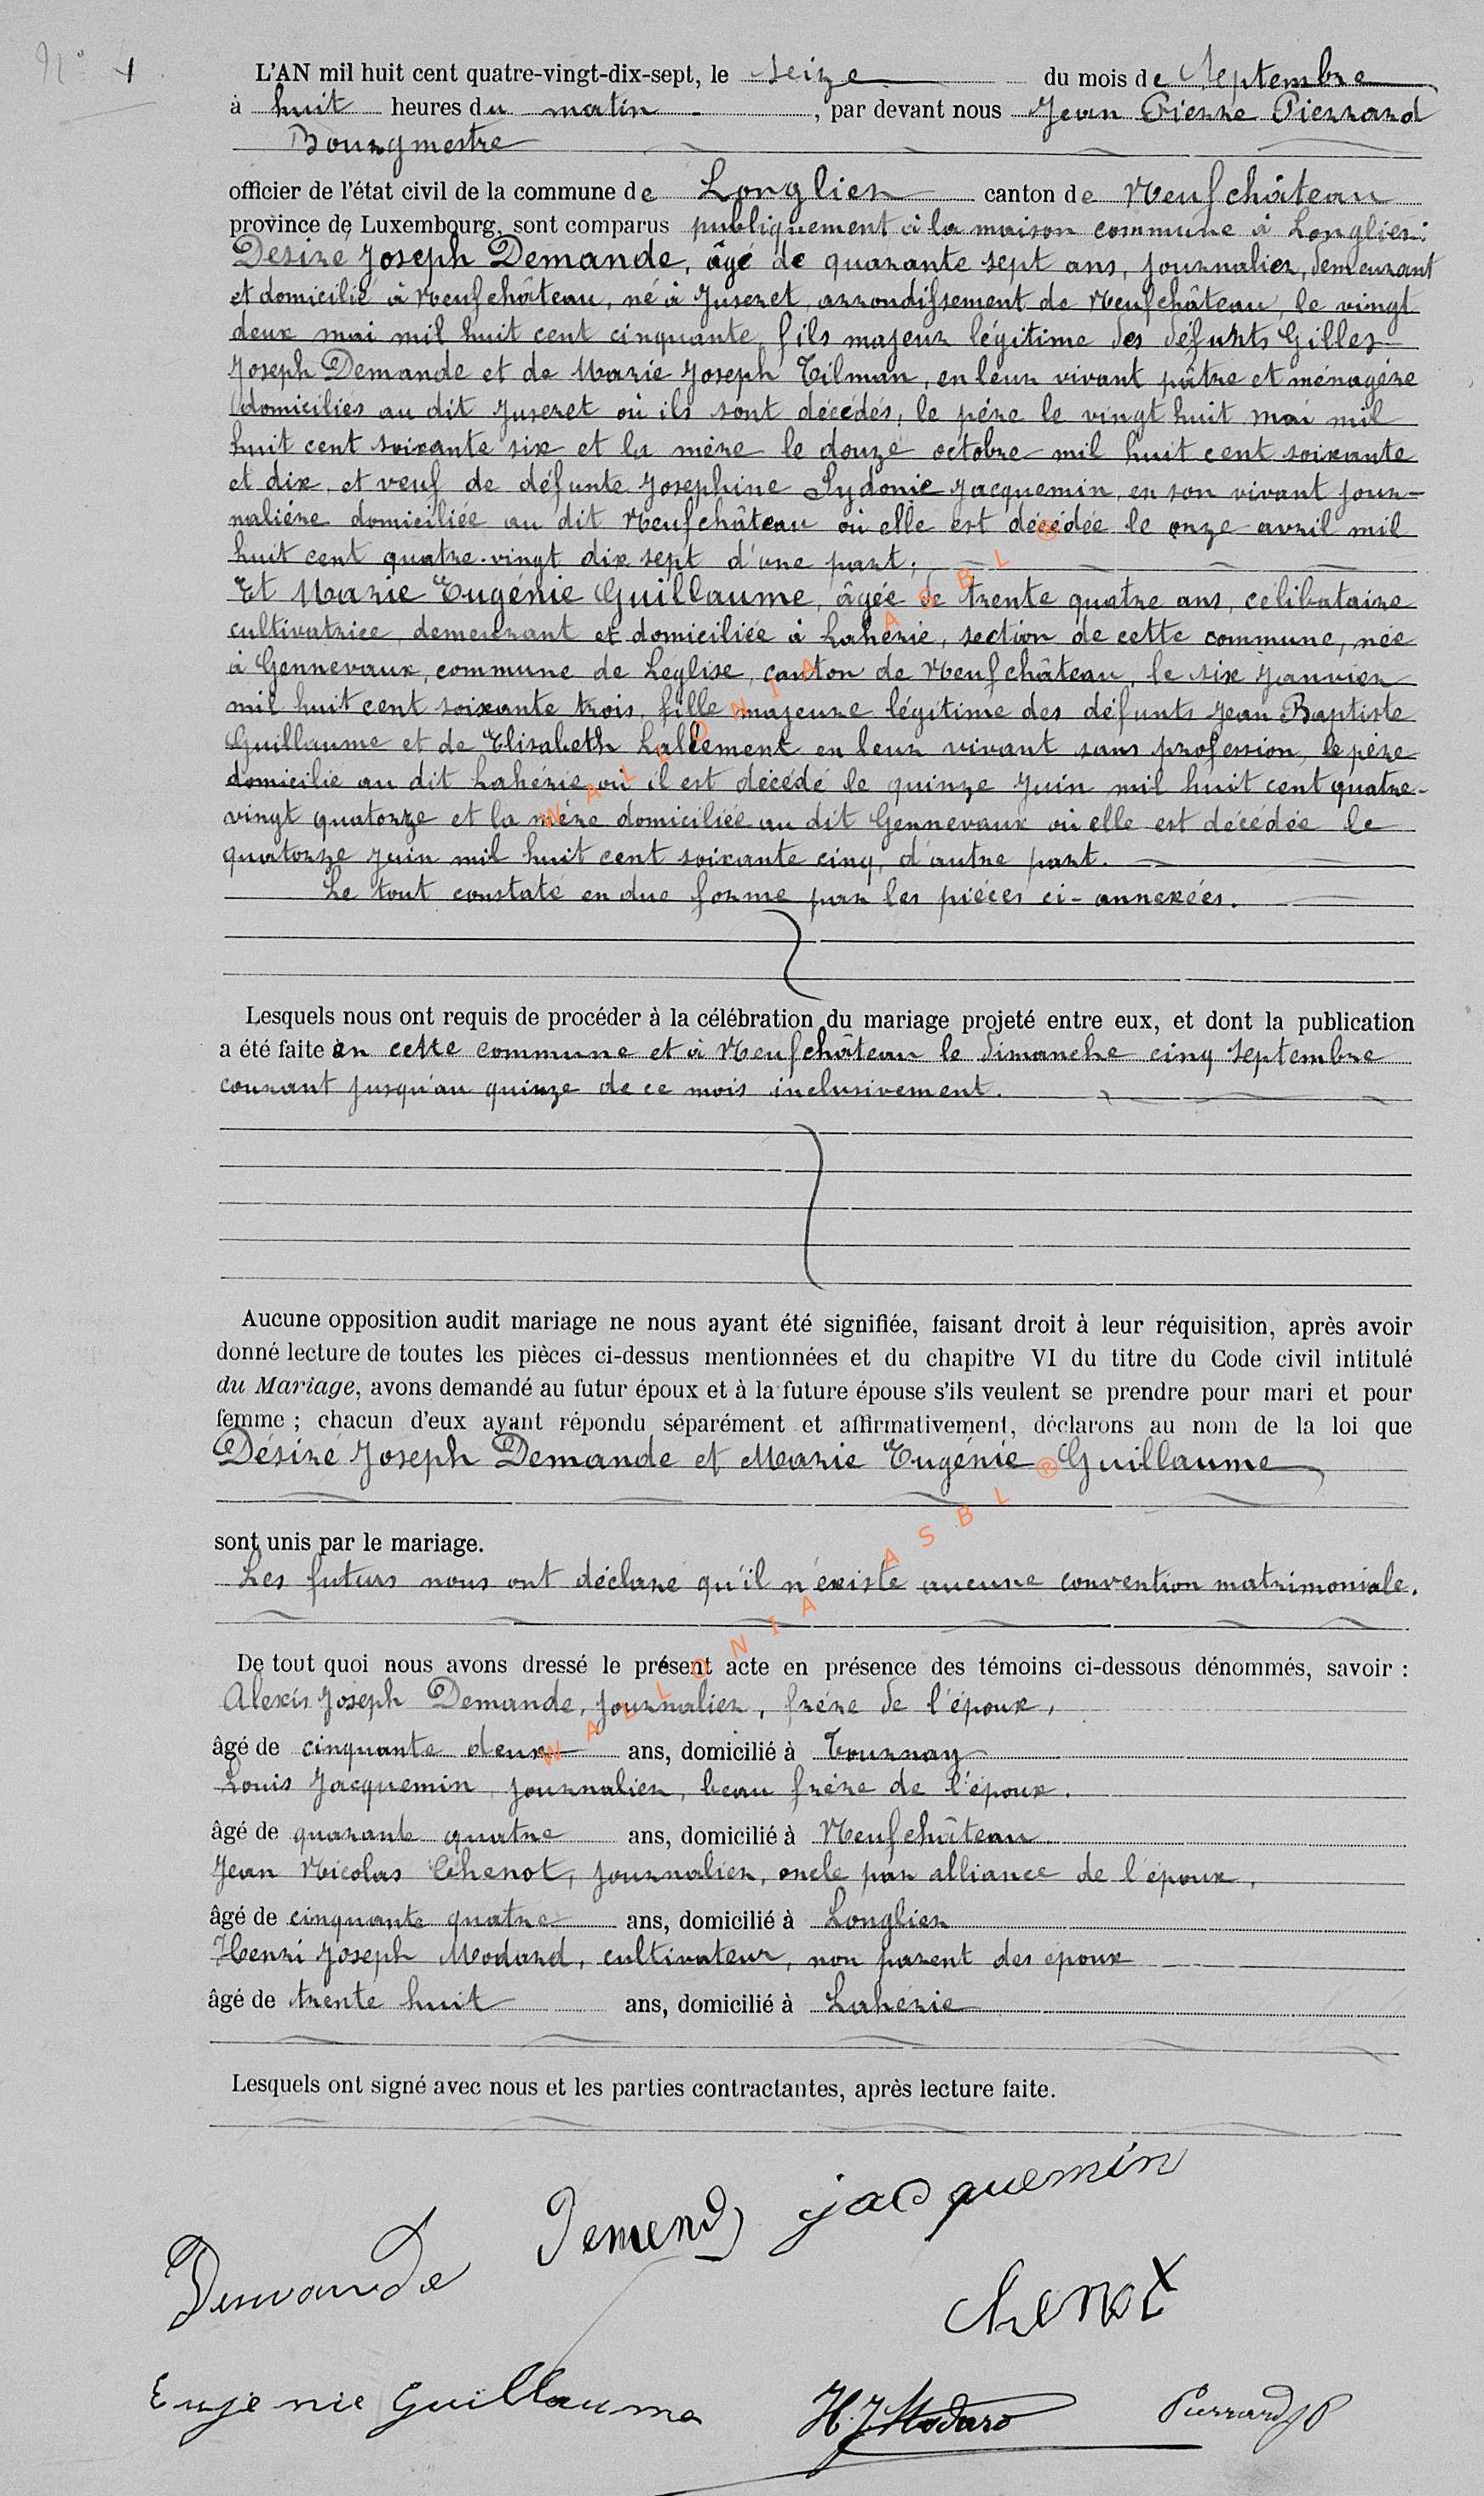 N° 4
L'AN mil huit cent quatre-vingt-dix-sept, le seize du mois de Septembre
à huit heures du matin, par devant nous Jean Pierre Pierrard
Bourgmestre
officier de l'état civil de la commune de Longlier canton de Neufchâteau
province de Luxembourg, sont comparus publiquement à la maison commune à Longlier:
Désiré Joseph Demande, âgé de quarante sept ans, journalier, demeurant
et domicilié à Neufchâteau, né à Juseret, arrondissement de Neufchâteau, le vingt
deux mai mil huit cent cinquante, fils majeur légitime des défunts Gilles
Joseph Demande et de Marie Joseph Tilman, en leur vivant pâtre et ménagère
domiciliés au dit Juseret où ils sont décédés, le père le vingt huit mai mil
huit cent soixante six et la mère le douze octobre mil huit cent soixante
et dix, et veuf de défunte Josephine Sydonie Jacquemin, en son vivant jour-
nalière domiciliée au dit Neufchâteau où elle est décédée le onze avril mil
huit cent quatre-vingt dix sept d'une part;
Et Marie Eugénie Guillaume, âgée de trente quatre ans, célibataire
cultivatrice, demeurant et domiciliée à Lahérie, section de cette commune, née
à Gennevaux, commune de Léglise, canton de Neufchâteau, le six Janvier
mil huit cent soixante trois, fille majeure légitime des défunts Jean Baptiste
Guillaume et de Elisabeth Lallement en leur vivant sans profession, le père
domicilié au dit Lahérie où il est décédé le quinze Juin mil huit cent quatre-
vingt quatorze et la mère domiciliée au dit Gennevaux où elle est décédée le
quatorze Juin mil huit cent soixante cinq, d'autre part.
Le tout constaté en due forme par les pièces ci-annexées.
Lesquels nous ont requis de procéder à la célébration du mariage projeté entre eux, et dont la publication
a été faite en cette commune et à Neufchâteau le dimanche cinq Septembre
courant jusqu'au quinze de ce mois inclusivement.
Aucune opposition audit mariage ne nous ayant été signifiée, faisant droit à leur réquisition, après avoir
donné lecture de toutes les pièces ci-dessus mentionnées et du chapitre VI du titre du Code civil intitulé
du Mariage, avons demandé au futur époux et à la future épouse s'ils veulent se prendre pour mari et pour
femme ; chacun d'eux ayant répondu séparément et affirmativement, déclarons au nom de la loi que
Désiré Joseph Demande et Marie Eugénie Guillaume
sont unis par le mariage.
Les futurs nous ont déclaré qu'il n'existe aucune convention matrimoniale.
De tout quoi nous avons dressé le présent acte en présence des témoins ci-dessous dénommés, savoir :
Alexis Joseph Demande, journalier, frère de l'époux,
âgé de cinquante deux ans, domicilié à Tournay
Louis Jacquemin, journalier, beau frère de l'époux.
âgé de quarante quatre ans, domicilié à Neufchâteau.
Jean Nicolas Chenot, journalier, oncle par alliance de l'époux,
âgé de cinquante quatre ans, domicilié à Longlier
Henri Joseph Modard, cultivateur, non parent des époux
âgé de trente huit ans, domicilié à Lahérie
Lesquels ont signé avec nous et les parties contractantes, après lecture faite.
Demande Demend jacquemin
Chenot
Eugenie Guillauma H. J. Modard Pierrard JP
WALLONIA ASBL ®
WALLONIA ASBL ®